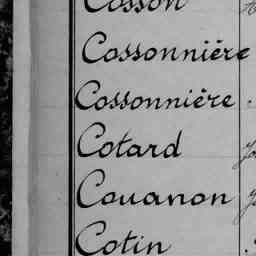 Cosson
Cossonnière
Cossonnière
Cotard
Couanon
Cotin